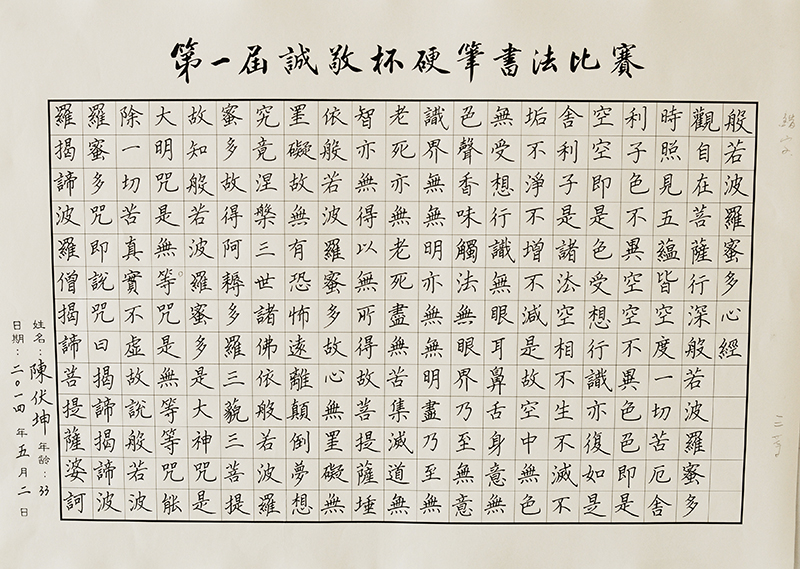 第一屆誠敬杯硬筆書法比賽
般若波羅蜜多心經
觀自在菩薩行深般若波羅蜜多
時照見五蘊皆空度一切苦厄舍
利子色不異空空不異色色即是
空空即是色受想行識亦復如是
舍利子是諸法空相不生不滅不
垢不淨不增不減是故空中無色
無受想行識無眼耳鼻舌身意無
色聲香味觸法無眼界乃至無意
識界無無明亦無無明盡乃至無
老死亦無老死盡無苦集滅道無
智亦無得以無所得故菩提薩埵
依般若波羅蜜多故心無罣礙無
罣礙故無有恐怖遠離顛倒夢想
究竟涅槃三世諸佛依般若波羅
蜜多故得阿耨多羅三藐三菩提
故知般若波羅蜜多是大神咒是
大明咒是無等咒是無等等咒能
除一切苦真實不虛故說般若波
羅蜜多咒即說咒曰揭諦揭諦波
羅揭諦波羅僧揭諦菩提薩婆訶
姓名：陳伏坤 年齡：33
日期：二〇一四年五月二日